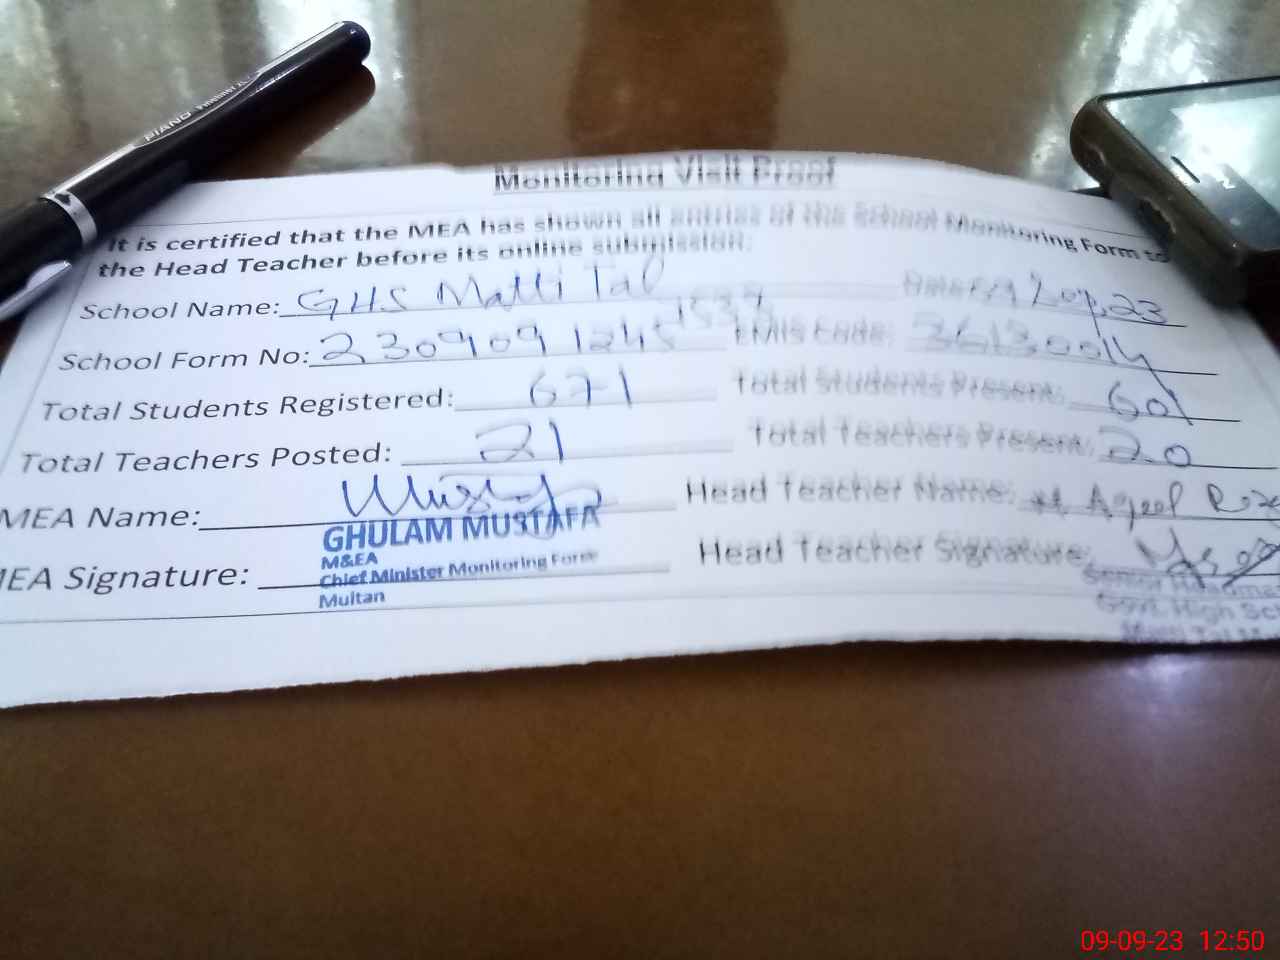 PIANO
Monitoring Visit Proof
It is certified that the MEA has shown all entries of the School Monitoring Form to
the Head Teacher before its online submission.
School Name: GHS Matti Tal Date: 23
School Form No: 2309091245 EMIS Code: 36130014
Total Students Registered: 671 Total Students Present: 601
Total Teachers Posted: 21 Total Teachers Present: 20
MEA Name: Head Teacher Name: Aqeel
GHULAM MUSTAFA
M&EA
MEA Signature: Head Teacher Signature:
Chief Minister Monitoring Force
Multan
Senior
Govt. High
09-09-23 12:50